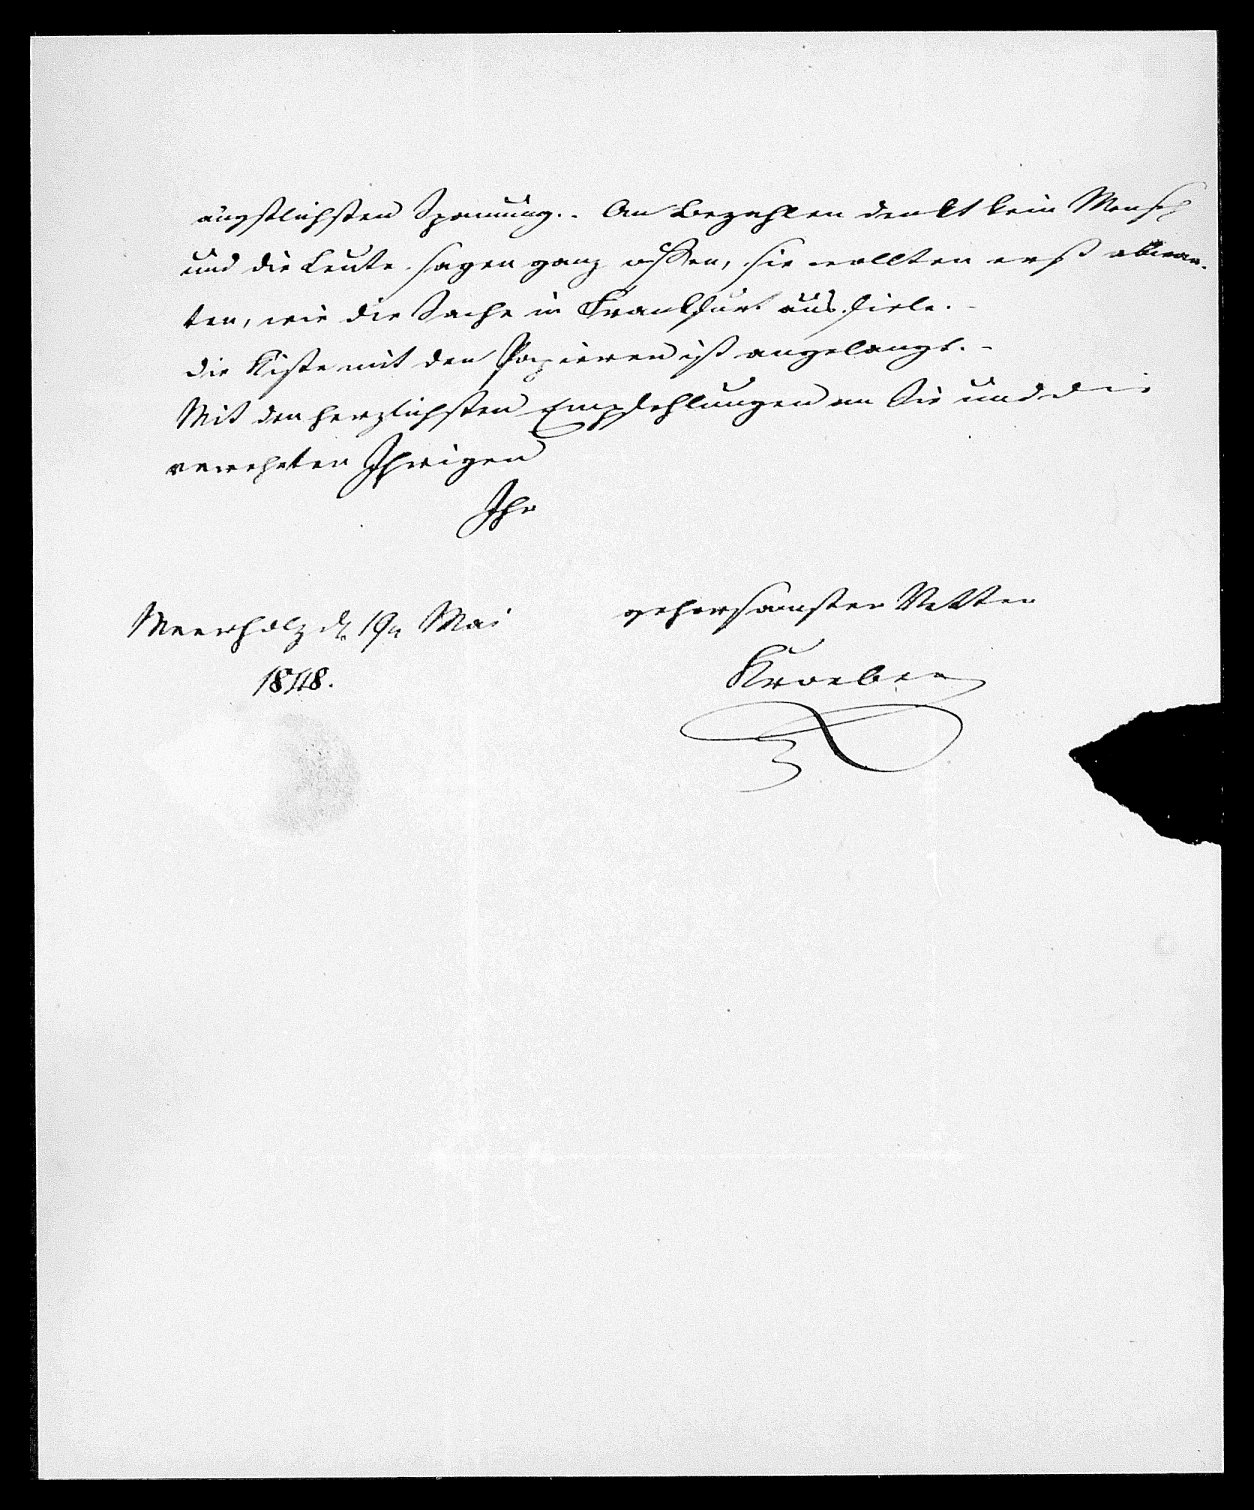 ängstlichsten Spannung. - An Bezahlen denkt kein Mensch
und die Leute sagen ganz offen, sie wollten erst abwar-
ten, wie die Sache in Frankfurt ausfiele. -
die Kiste mit den Papieren ist angelangt. -
Mit den herzlichsten Empfehlungen an Sie und die
verehrten Ihrigen
Ihr
gehorsamster Vetter
Kroeber
Meerholz d. 19n Mai
1848.